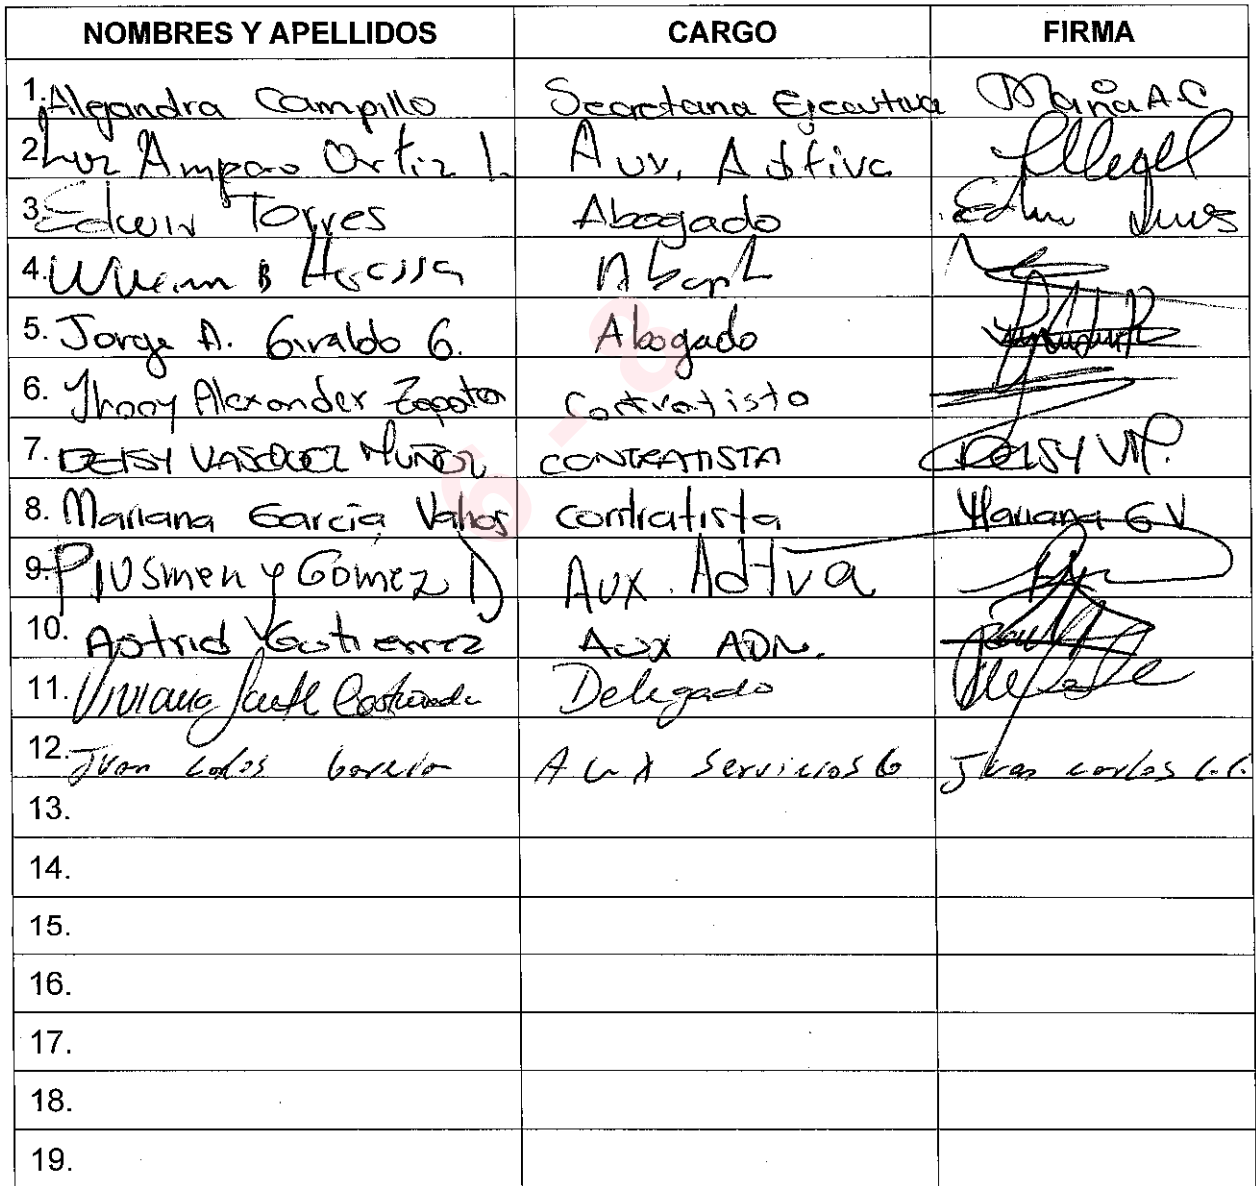 NOMBRES Y APELLIDOS CARGO FIRMA
1. Alejandra Campillo Secretaria Ejecutiva Maria A.C
2. Luz Amparo Ortiz L. Aux. Adtiva
3. Edwin Torres Abogado Edwin
4. B
5. Jorge A. Giraldo G. Abogado
6. Jhony Alexander Zapata Contratista
7. DEISY VASQUEZ MUÑOZ CONTRATISTA DEISY VM.
8. Mariana García Vahos contratista Mariana G V
9. y Gómez D Aux. Adtva
10. Astrid Gutierrez Aux ADM.
11. Viviana Delegado
12. Juan Carlos Garcia Aux Servicios G Juan Carlos G.G.
13.
14.
15.
16.
17.
18.
19.